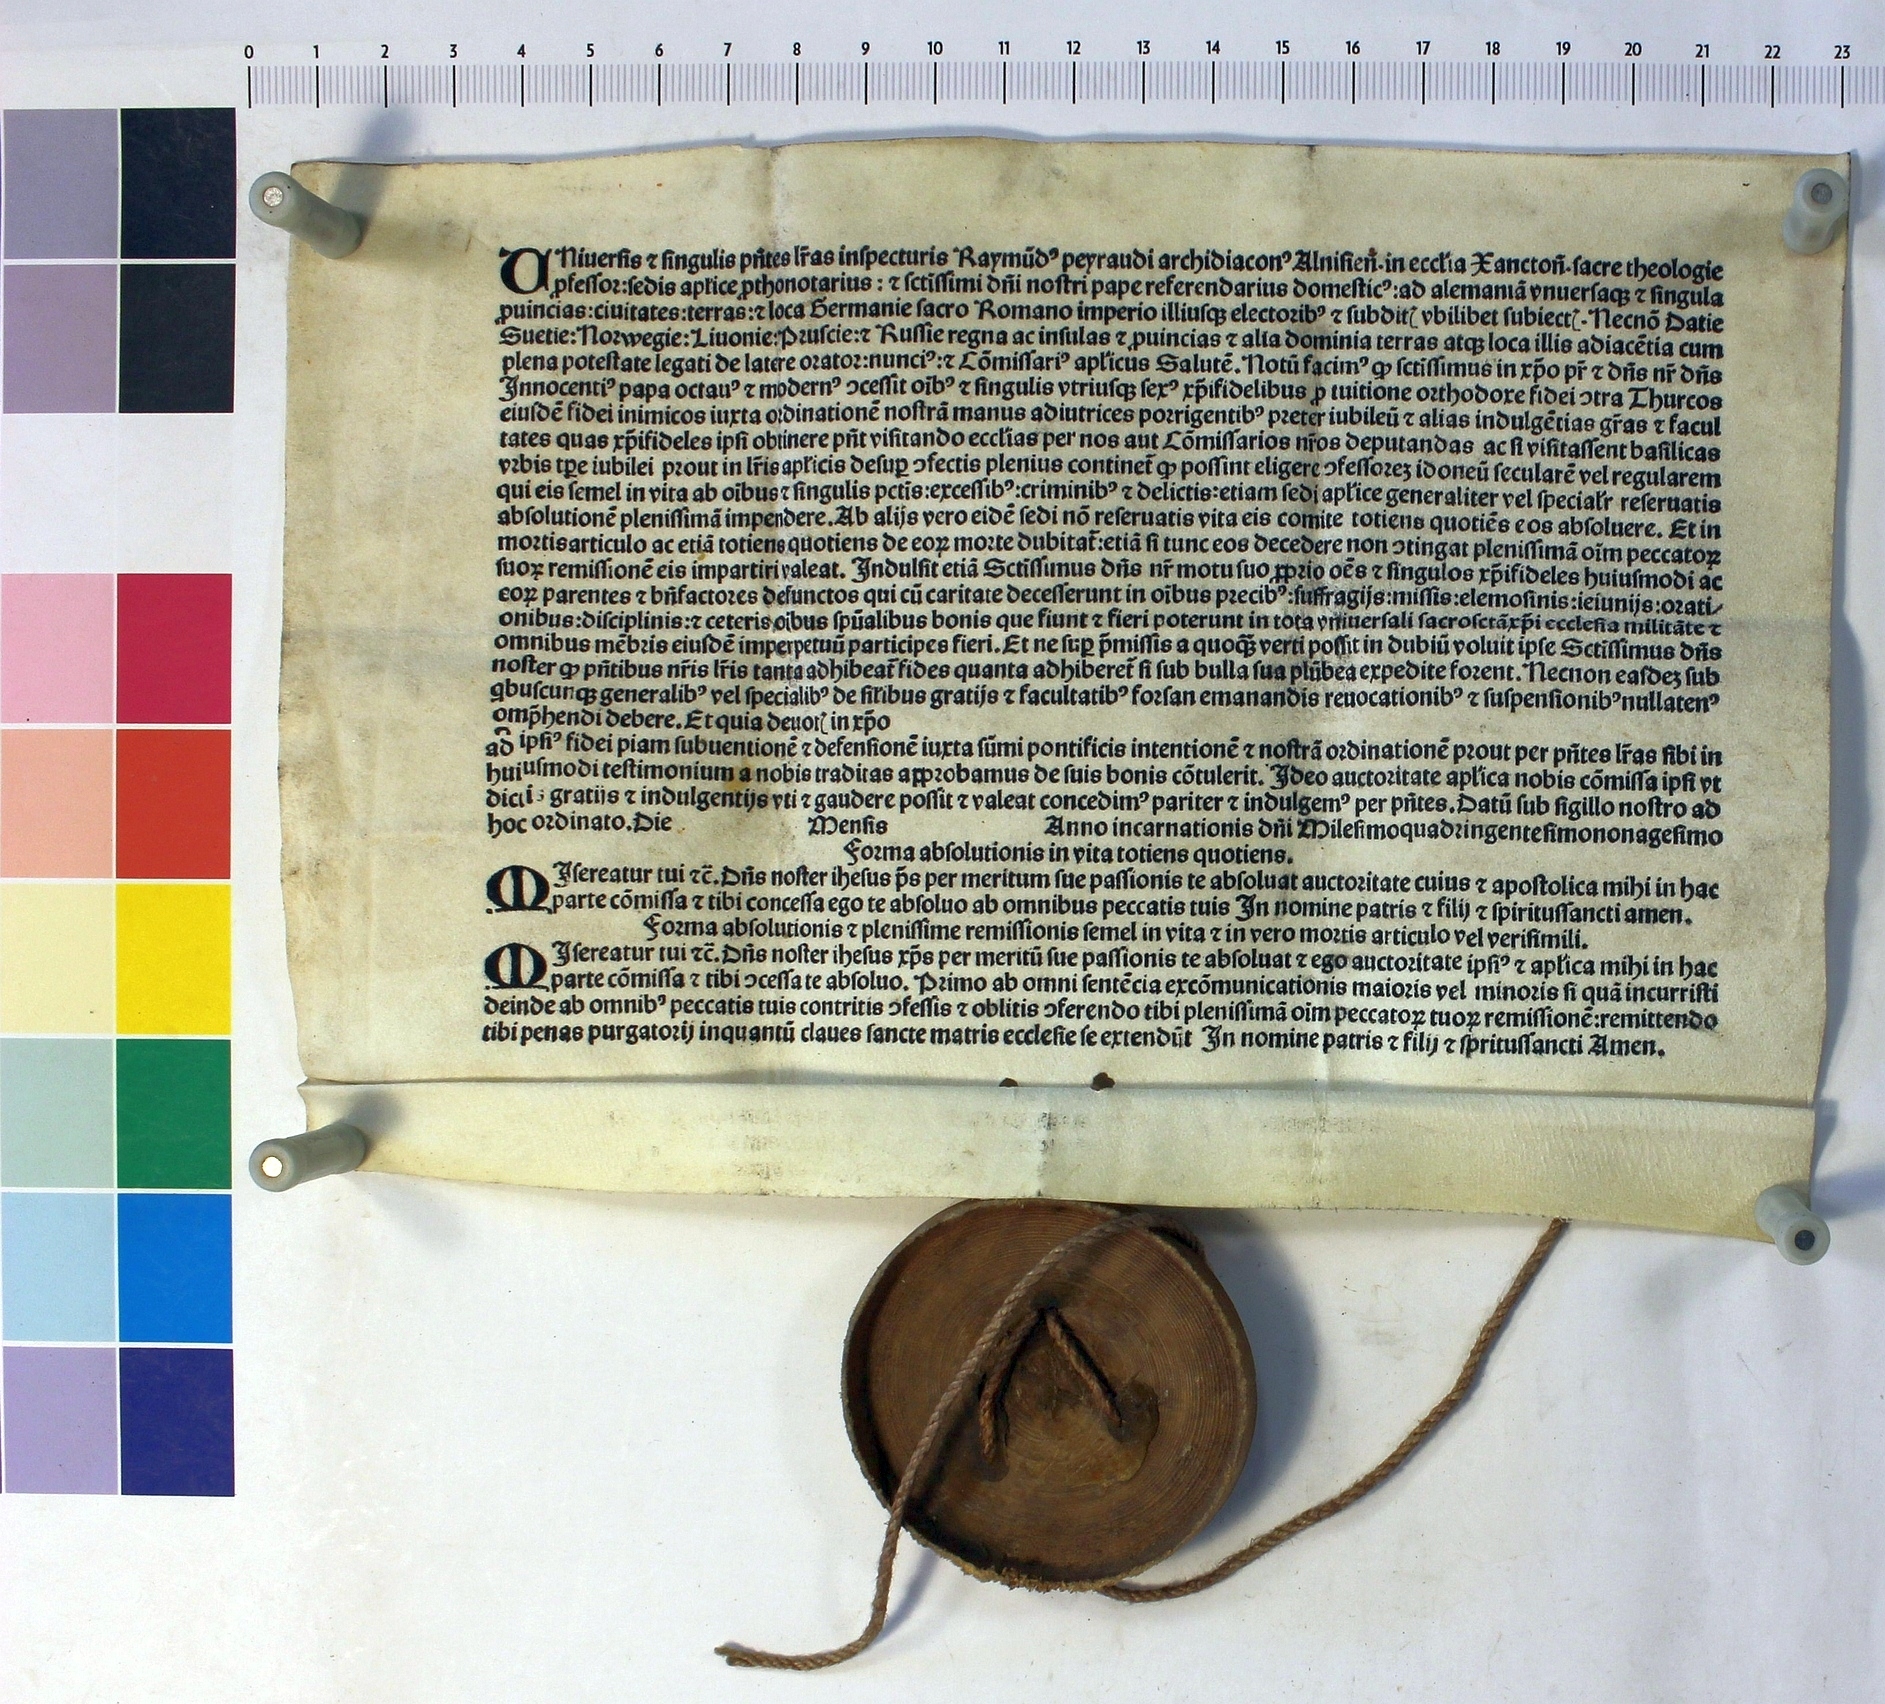 0 1 2 3 4 5 6 7 8 9 10 11 12 13 14 15 16 17 18 19 20 21 22 23
UNiuersis ⁊ singulis pn̄tes lr̄as inspecturis Raymūdꝰ peyraudi archidiaconꝰ Alnisien̄.in ecclia Xancton̄.sacre theologie
ꝓfessor:sedis aplice ꝓthonotarius : ⁊ sctissimi dn̄i nostri pape referendarius domesticꝰ:ad alemaniā vnuersaqꝫ ⁊ singula
ꝓuincias:ciuitates:terras:⁊ loca Germanie sacro Romano imperio illiusqꝫ electoribꝰ ⁊ subditꝭ vbilibet subiectꝭ. Necnō Datie
Suetie:Norwegie:Liuonie:Pruscie:⁊ Russie regna ac insulas ⁊ ꝓuincias ⁊ alia dominia terras atqꝫ loca illis adiacētia cum
plena potestate legati de latere orator:nunciꝰ:⁊ Cōmissariꝰ aplicus Salutē. Notū facimꝰ ꝙ sctissimus in xp̄o pr̄ ⁊ dn̄s nr̄ dn̄s
Innocentiꝰ papa octauꝰ ⁊ modernꝰ ↄcessit oībꝰ ⁊ singulis vtriusqꝫ sexꝰ xp̄ifidelibus ꝓ tuitione orthodoxe fidei ↄtra Thurcos
eiusdē fidei inimicos iuxta ordinationē nostrā manus adiutrices porrigentibꝰ preter iubileū ⁊ alias indulgētias gr̄as ⁊ facul
tates quas xp̄ifideles ipsi obtinere pn̄t visitando ecclias per nos aut Cōmissarios nr̄os deputandas ac si visitassent basilicas
vrbis tꝑe iubilei prout in lr̄is aplicis desuꝑ ↄfectis plenius continet̄ ꝙ possint eligere ↄfessoreꝫ idoneū secularē vel regularem
qui eis semel in vita ab oībus ⁊ singulis pctis:excessibꝰ:criminibꝰ ⁊ delictis:etiam sedi aplice generaliter vel specialr̄ reseruatis
absolutionē plenissimā impendere. Ab alijs vero eidē sedi nō reseruatis vita eis comite totiens quotiēs eos absoluere. Et in
mortis articulo ac etiā totiens quotiens de eoꝝ morte dubitat̄:etiā si tunc eos decedere non ↄtingat plenissimā oīm peccatoꝝ
suoꝝ remissionē eis impartiri valeat. Indulsit etiā Sctissimus dn̄s nr̄ motu suo ꝓprio oēs ⁊ singulos xp̄ifideles huiusmodi ac
eoꝝ parentes ⁊ bn̄factores defunctos qui cū caritate decesserunt in oībus precibꝰ:suffragijs:missis:elemosinis:ieiunijs:orati⸗
onibus:disciplinis:⁊ ceteris oībus spūalibus bonis que fiunt ⁊ fieri poterunt in tota vniuersali sacrosctā xp̄i ecclesia militāte ⁊
omnibus mēbris eiusdē imperpetuū participes fieri. Et ne suꝑ p̄missis a quoqꝫ verti possit in dubiū voluit ipse Sctissimus dn̄s
noster ꝙ pn̄tibus nr̄is lr̄is tanta adhibeat̄ fides quanta adhiberet̄ si sub bulla sua plūbea expedite forent. Necnon easdeꝫ sub
qbuscunqꝫ generalibꝰ vel specialibꝰ de silibus gratijs ⁊ facultatibꝰ forsan emanandis reuocationibꝰ ⁊ suspensionibꝰ nullatenꝰ
omp̄hendi debere. Et quia deuotꝭ in xp̄o
ad ipsiꝰ fidei piam subuentionē ⁊ defensionē iuxta sūmi pontificis intentionē ⁊ nostrā ordinationē prout per pn̄tes lr̄as sibi in
huiusmodi testimonium a nobis traditas approbamus de suis bonis cōtulerit. Ideo auctoritate aplica nobis cōmissa ipsi vt
dictis gratijs ⁊ indulgentijs vti ⁊ gaudere possit ⁊ valeat concedimꝰ pariter ⁊ indulgemꝰ per pn̄tes. Datū sub sigillo nostro ad
hoc ordinato. Die Mensis Anno incarnationis dn̄i Milesimoquadringentesimononagesimo
Forma absolutionis in vita totiens quotiens.
MIsereatur tui ⁊c̄. Dn̄s noster ihesus p̄s per meritum sue passionis te absoluat auctoritate cuius ⁊ apostolica mihi in hac
parte cōmissa ⁊ tibi concessa ego te absoluo ab omnibus peccatis tuis In nomine patris ⁊ filij ⁊ spiritussancti amen.
Forma absolutionis ⁊ plenissime remissionis semel in vita ⁊ in vero mortis articulo vel verisimili.
MIsereatur tui ⁊c̄. Dn̄s noster ihesus xp̄s per meritū sue passionis te absoluat ⁊ ego auctoritate ipsiꝰ ⁊ aplica mihi in hac
parte cōmissa ⁊ tibi ↄcessa te absoluo. Primo ab omni sentēcia excōmunicationis maioris vel minoris si quā incurristi
deinde ab omnibꝰ peccatis tuis contritis ↄfessis ⁊ oblitis ↄferendo tibi plenissimā oīm peccatoꝝ tuoꝝ remissionē:remittendo
tibi penas purgatorij inquantū claues sancte matris ecclesie se extendūt In nomine patris ⁊ filij ⁊ spritussancti Amen.